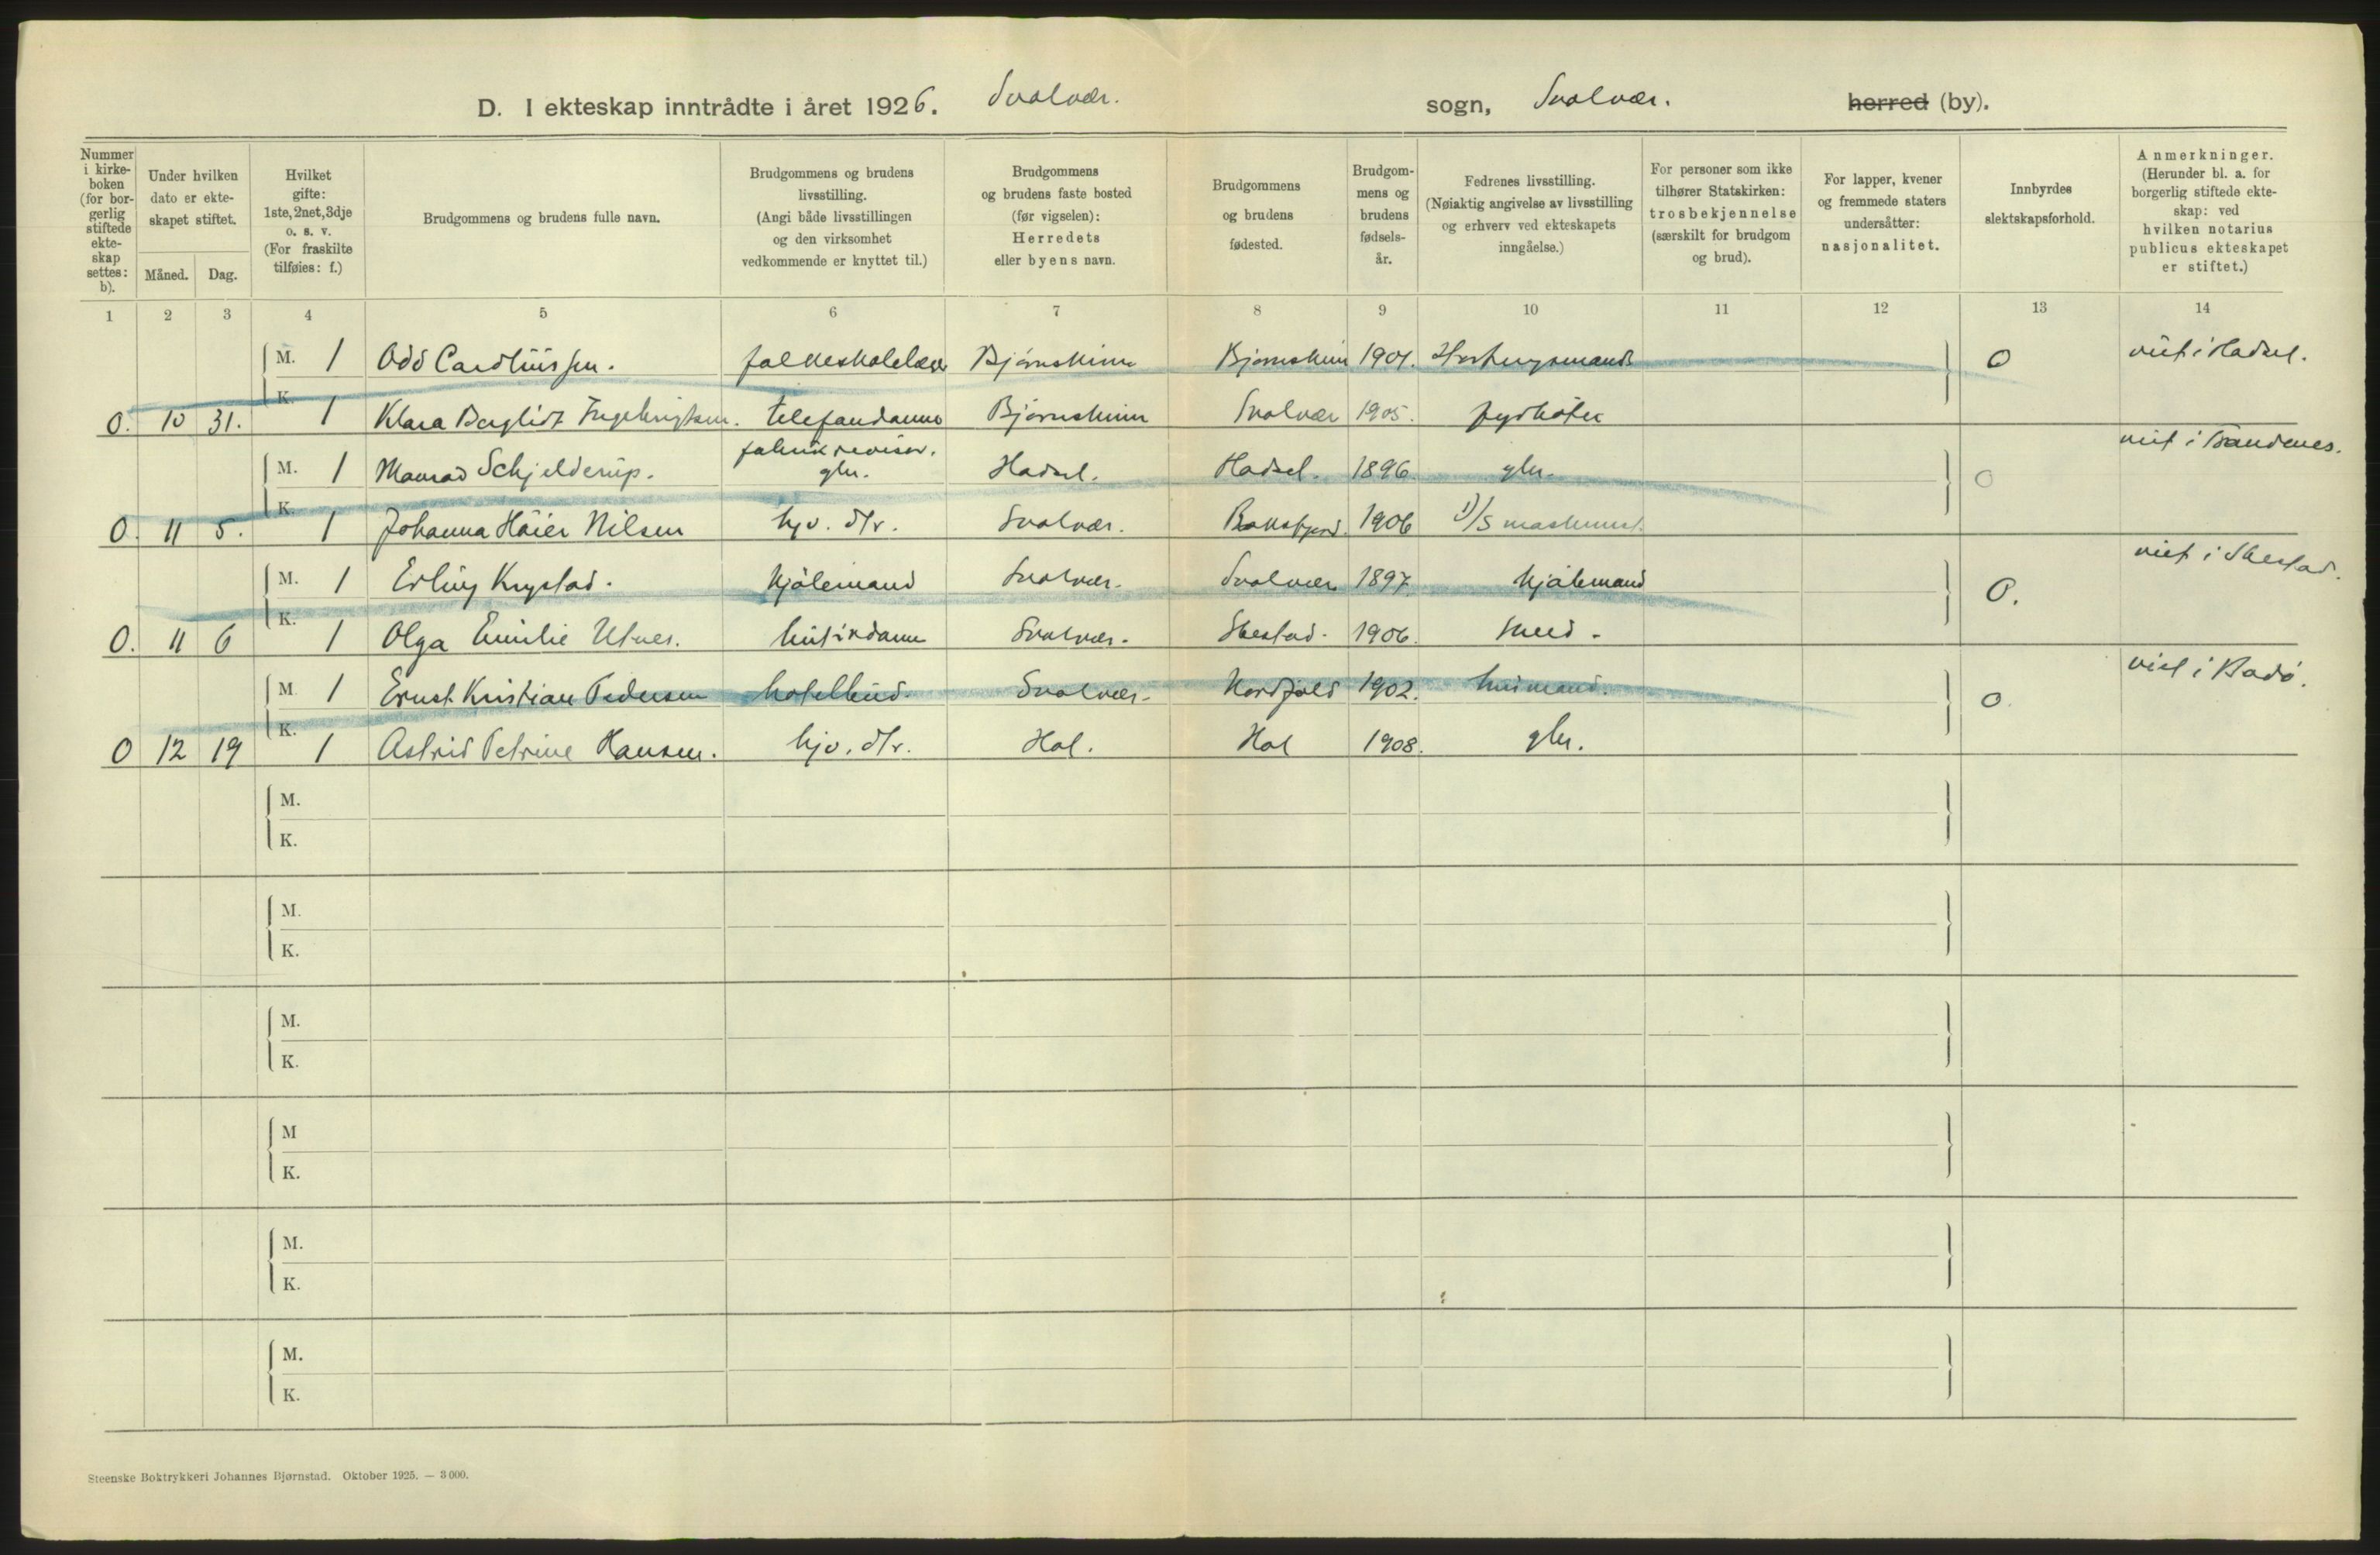 D. I ekteskap inntrådte i året 1926. Svolvær. sogn, Svolvær. herred (by).
Nummer i kirke-boken (for bor-gerlig stiftede ekte-skap settes: b).
Under hvilken dato er ekte-skapet stiftet.
Måned. Dag.
Hvilket gifte: 1ste, 2net, 3dje o. s. v. (For fraskilte tilføies: f.)
Brudgommens og brudens fulle navn.
Brudgommens og brudens livsstilling. (Angi både livsstillingen og den virksomhet vedkommende er knyttet til.)
Brudgommens og brudens faste bosted (før vigselen): Herredets eller byens navn.
Brudgommens og brudens fødested.
Brudgom-mens og brudens fødsels-år.
Fedrenes livsstilling. (Nøiaktig angivelse av livsstilling og erhverv ved ekteskapets inngåelse.)
For personer som ikke tilhører Statskirken: trosbekjennelse (særskilt for brudgom og brud).
For lapper, kvener og fremmede staters undersåtter: nasjonalitet.
Innbyrdes slektskapsforhold.
Anmerkninger. (Herunder bl. a. for borgerlig stiftede ekte-skap: ved hvilken notarius publicus ekteskapet er stiftet.)
1 2 3 4 5 6 7 8 9 10 11 12 13 14
M. 1 Odd folkeskolelærer Bjørnskinn Bjørnskinn 1901. 0 viet i Hadsel.
K. 0. 10 31. 1 Klara Bergliot Ingebrigtsen. telefondame Bjørnskinn Svolvær 1905. fyrbøter
fabrikrevisor.
M. 1 Schjelderup. gbr. Hadsel. Hadsel. 1896 gbr. 0 viet i Trandenes.
K. 0. 11 5. 1 Johanna Høier Nilsen hjv. dtr. Svolvær. 1906 D/S maskinist.
M. 1 Erling Krystad. kjølemand Svolvær. Svolvær 1897. kjølemand 0. viet i Ibestad.
K. 0. 11 6 1 Olga Emilie Utnes. Svolvær. Ibestad. 1906. smed.
M. 1 Ernst Kristian Pedersen hotellbud. Svolvær. Nordfold 1902. husmand. 0. viet i Bodø.
K. 0 12 19 1 Astrid Petrine Hansen. hjv. dtr. Hol. Hol 1908. gbr.
M.
K.
M.
K.
M.
K.
M
K.
M.
K.
M.
K.
Steenske Boktrykkeri Johannes Bjørnstad. Oktober 1925. — 3 000.